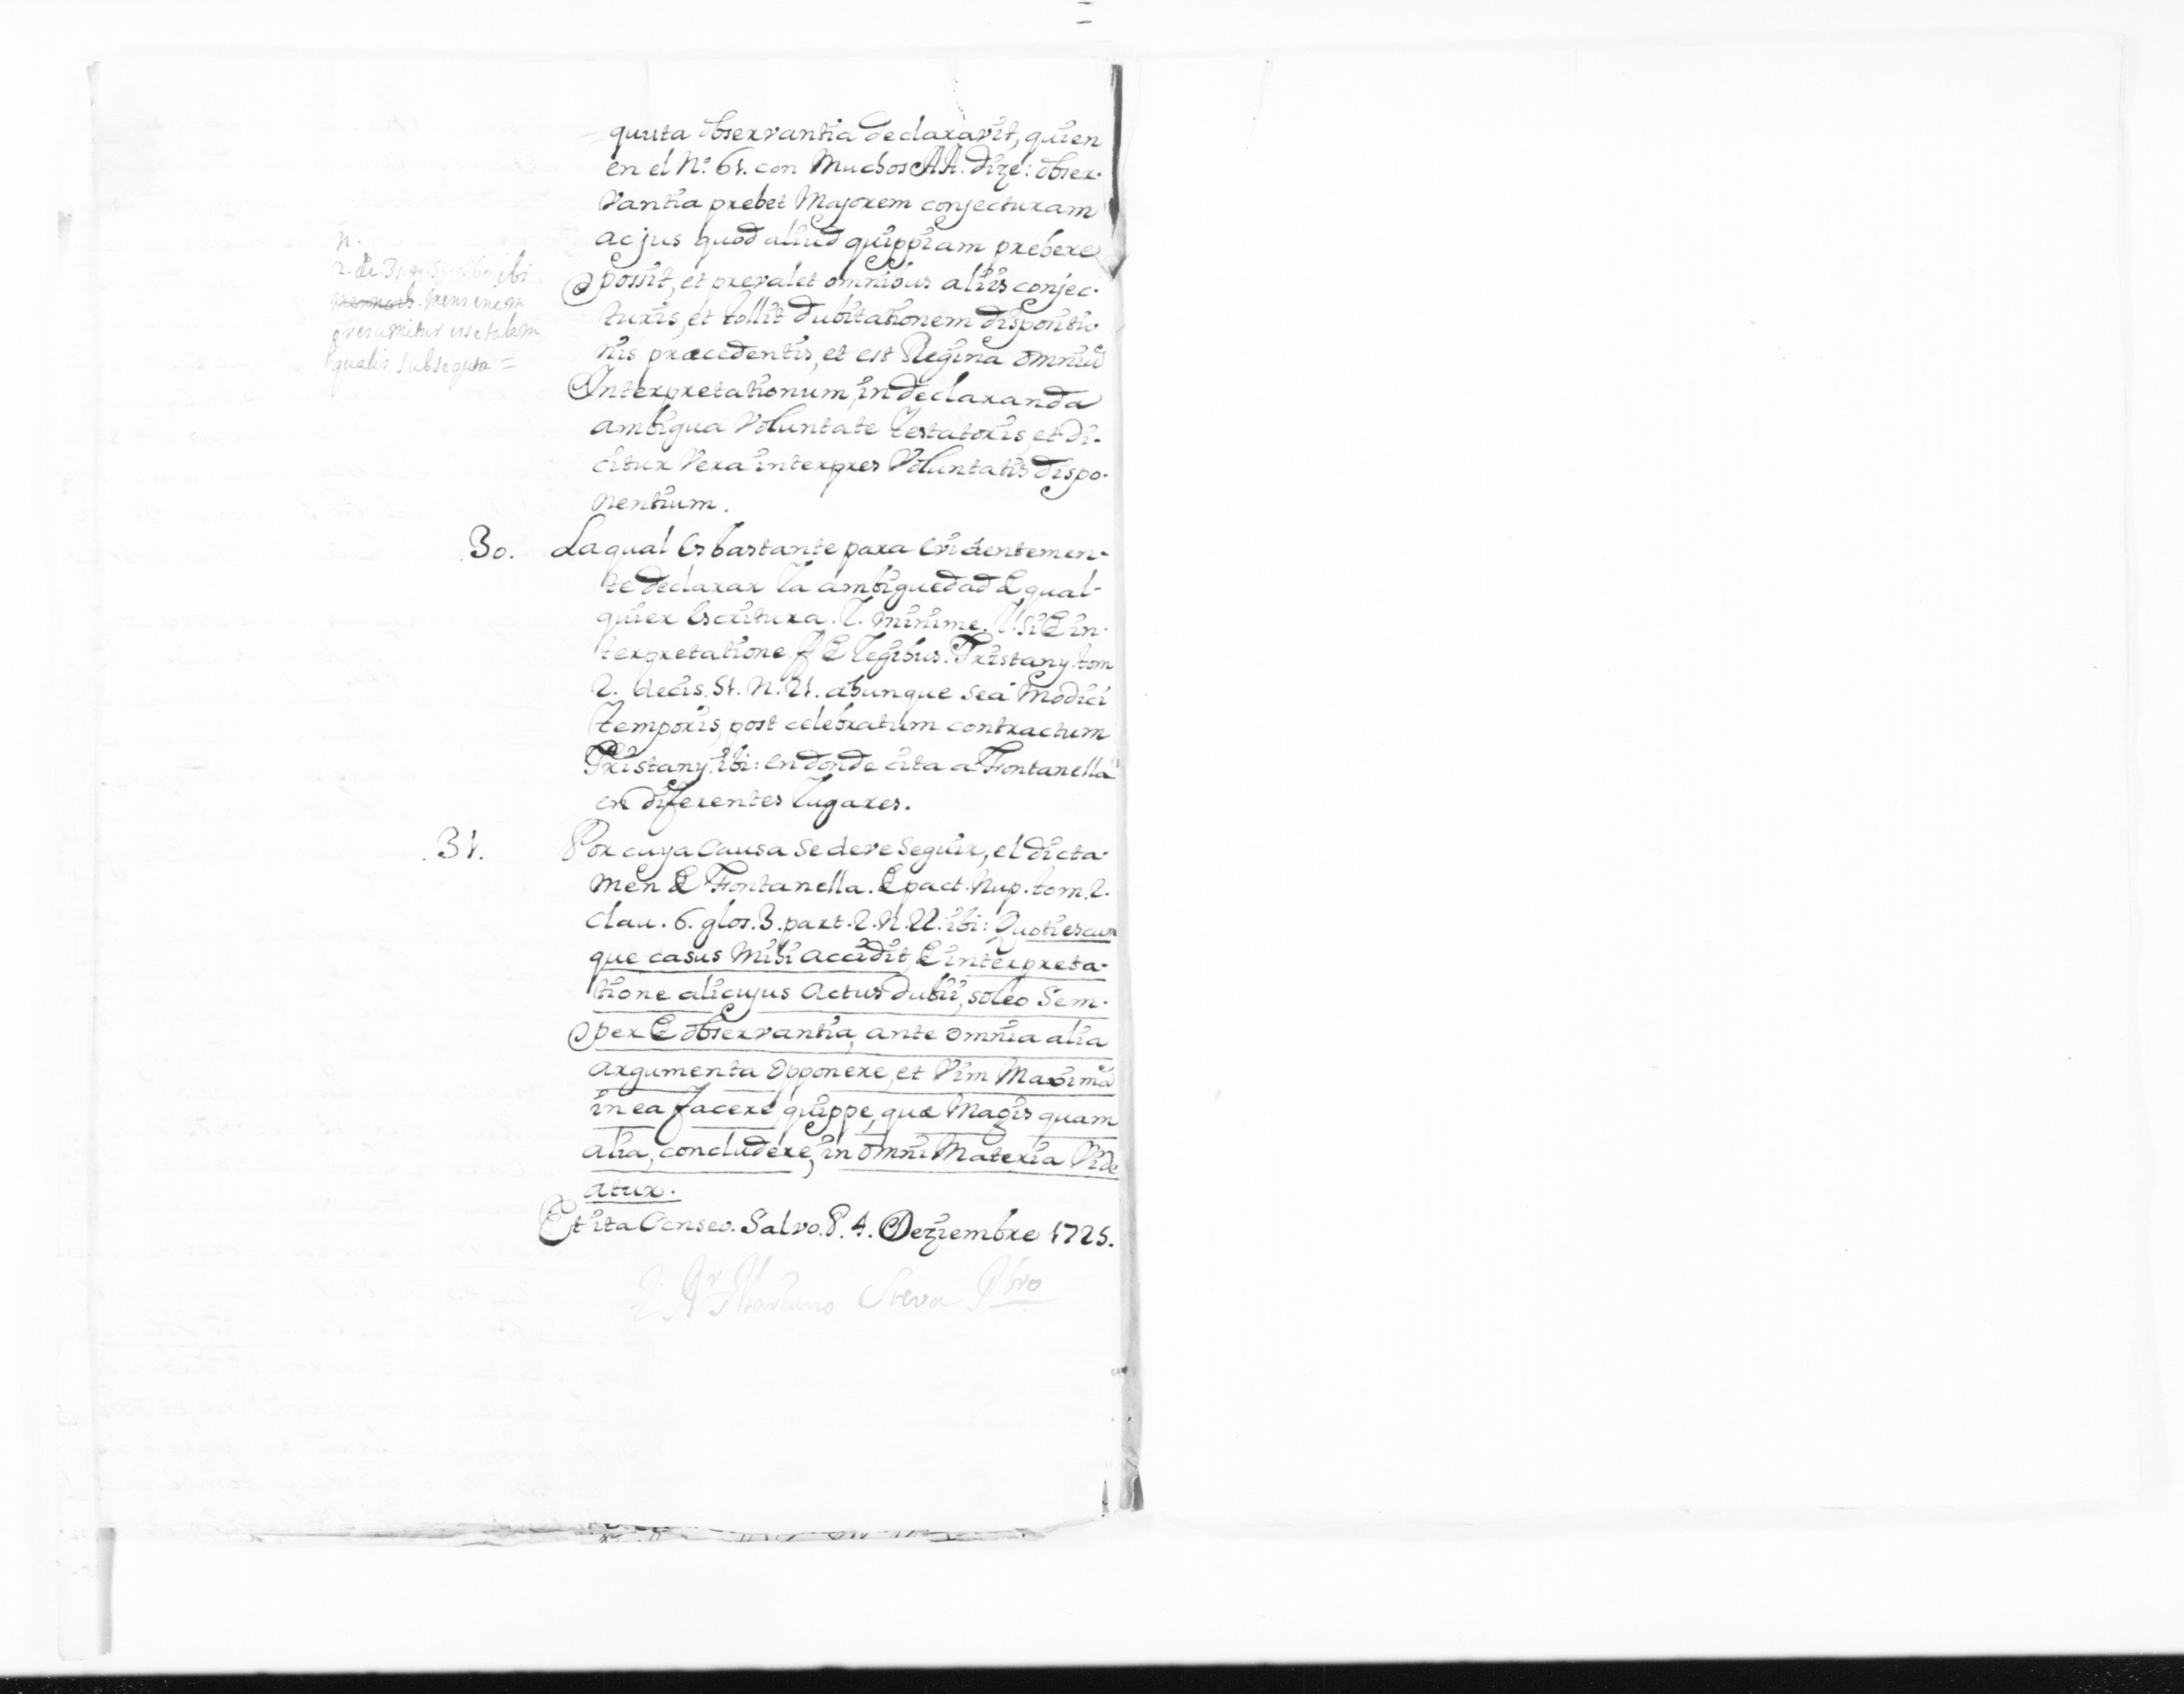 quuta observantia declaravit, quien
en el N.º 61. con Muchos AA. dize: obser-
vantia prebet Majorem conjecturam
ac jus quod aliud quippiam prebere
possit, et prevalet omnibus aliis conjec-
turis, et tollit dubitationem dispositio
nis præcedentis, et est Regina omniũ
Interpretationum, in declaranda
ambigua Voluntate testatoris, et di-
citur Vera interpres Voluntatis dispo-
nentium.
ibi
mens enim
presumitur esse talem
qualis subsequta =
30. La qual es bastante para evidentemen-
te declarar la ambiguedad de qual-
quier escritura. l. minime. l. si de in-
terpretatione ff de legibus. Tristany. tom
2. decis. 51. N. 21. ahunque sea Modici
temporis, post celebratum contractum
Tristany. ibi: en donde cita a Fontanella
en diferentes lugares.
31. Por cuya Causa se deve seguir, el dicta-
men de Fontanella. de pact. Nup. tom. 2.
clau. 6. glos. 3. part. 2. N. 22. ibi: Quotiescun
que casus Mihi accidit, de interpreta-
tione alicujus Actus dubii, soleo Sem-
per de observantia, ante omnia alia
argumenta opponere, et Vim Maximã
in ea facere, quippe, quæ Magis quam
alia, concludere, in omni Materia Vide
atur.
Et ita Censeo. Salvo. &. 4. Deziembre 1725.
Dr Mariano Steva Pbro